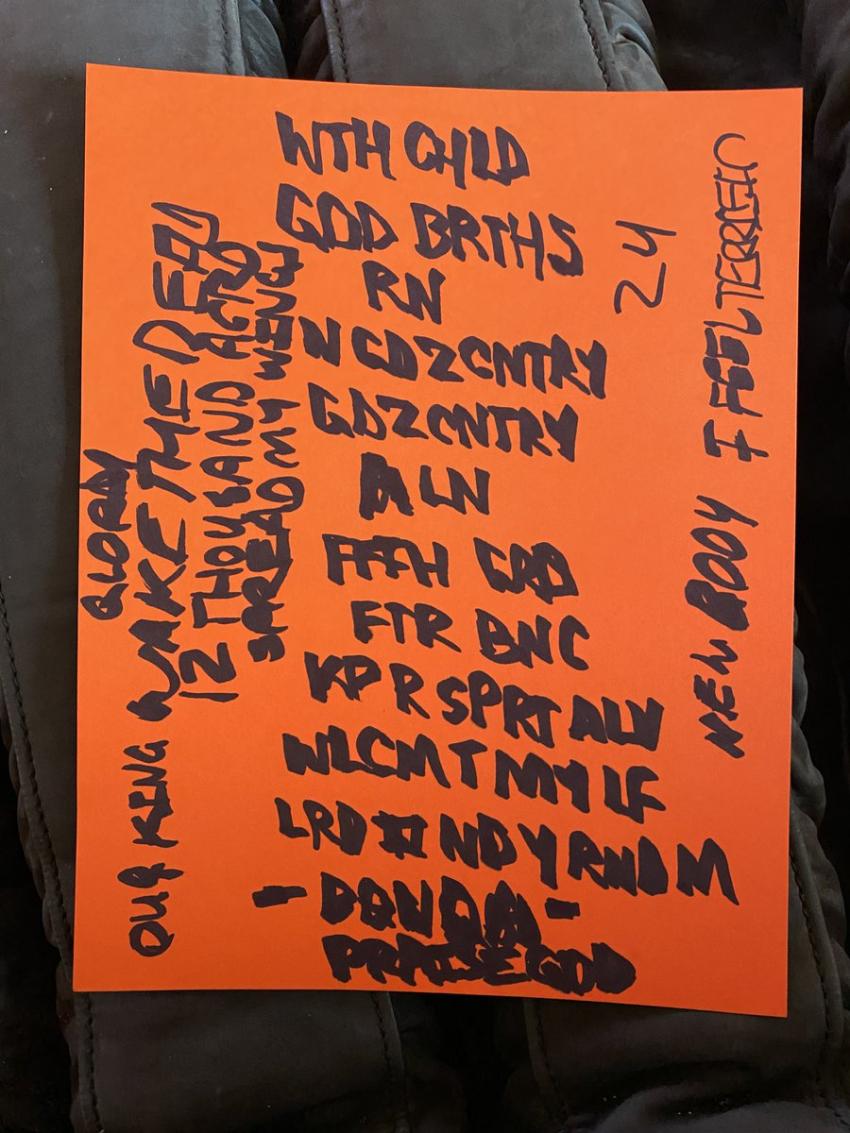 WTH CHLD
GOD BRTHS
RN
N GDZ CNTRY
GDZ CNTRY
LN
FTH GRD
FTR BNC
KP R SPRT ALV
WLCM T MY LF
LRD ND Y RNDM
- DONDA -
PRAISE GOD
24
NEW BODY
I FEEL TERRIFIC
GLORY
OUR KING
WAKE THE DEAD
12 THOUSAND ACRE
SPREAD MY WINGS